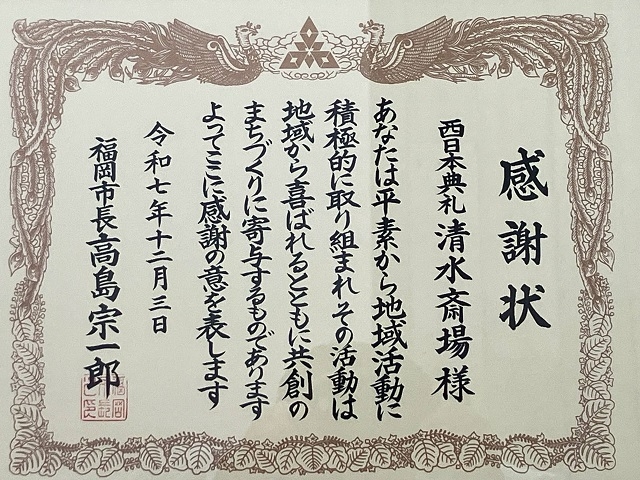 感謝状
西日本典礼 清水斎場様
あなたは平素から地域活動に
積極的に取り組まれその活動は
地域から喜ばれるとともに共創の
まちづくりに寄与するものであります
よってここに感謝の意を表します
令和七年十二月三日
福岡市長 高島宗一郎